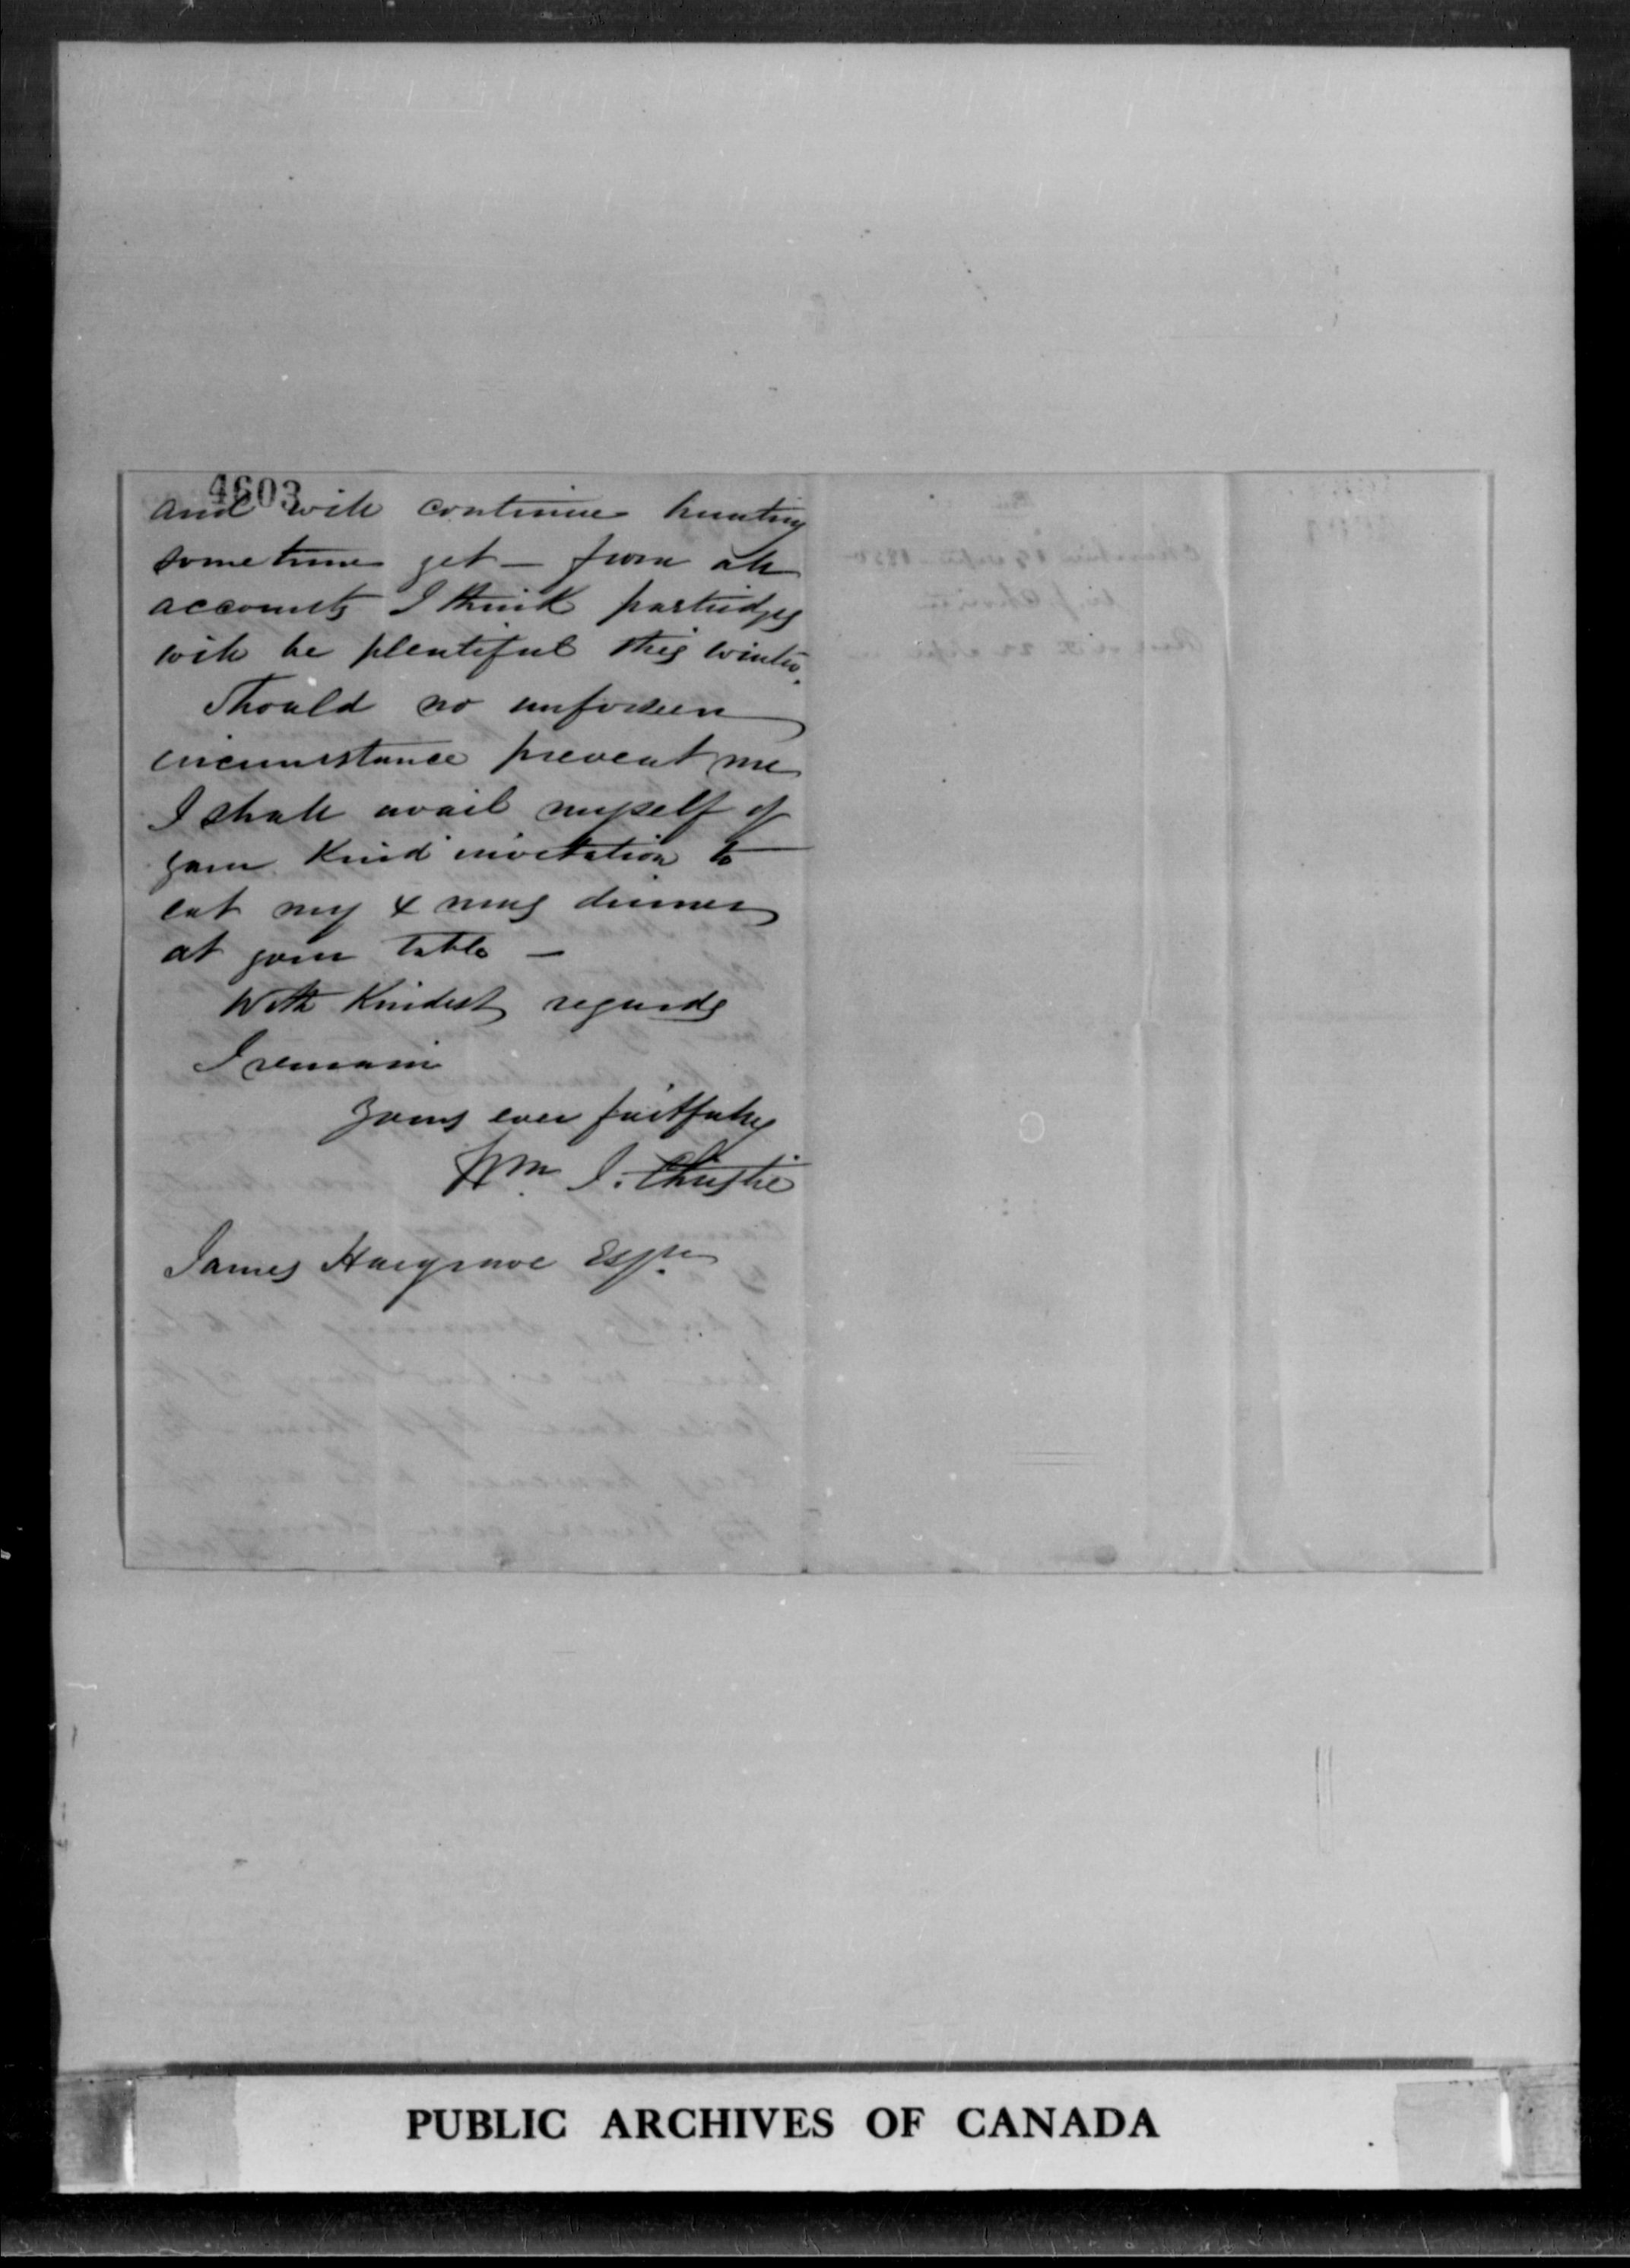 4603
and will continue hunting
sometime yet — from all
accounts I think partridges
will be plentiful this winter.
Should no unforseen
circumstance prevent me
I shall avail myself of
your Kind invitation to
eat my Xmas dinner
at your table —
With Kindest regards
I remain
Yours ever faithfully
Wm J. Christie
James Hargrave Esqre
PUBLIC ARCHIVES OF CANADA